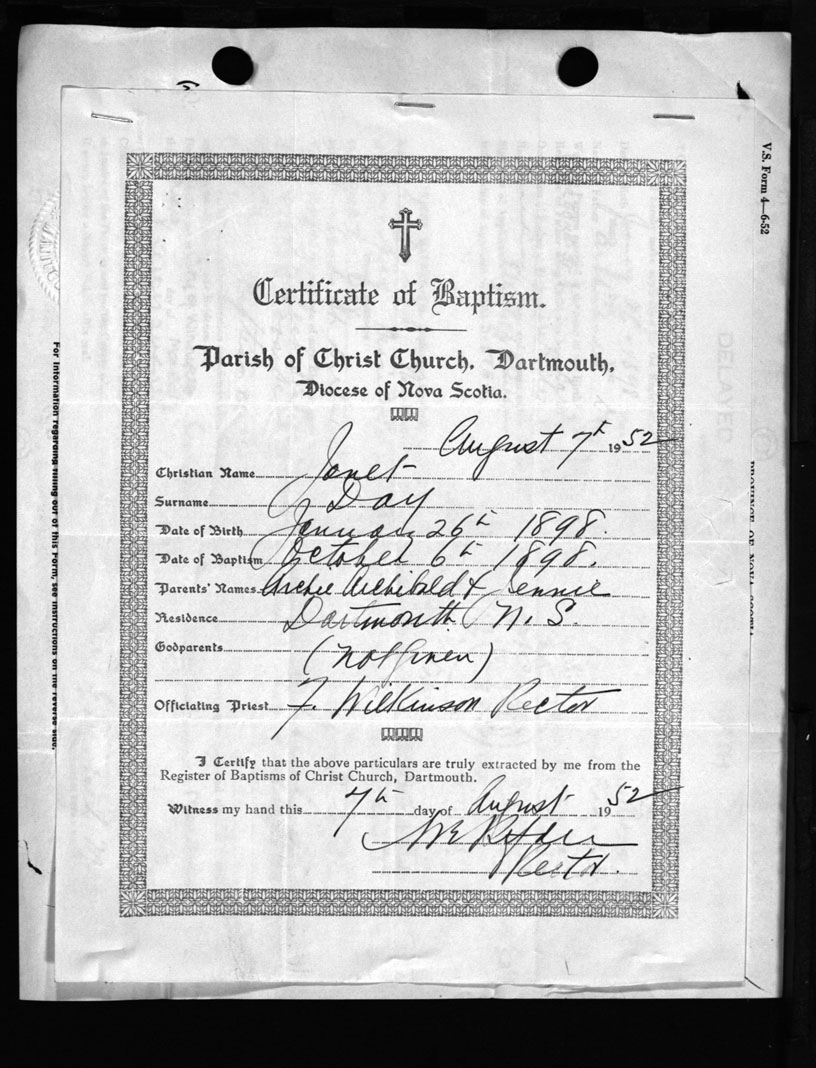 V.S. Form 4—6-52
Certificate of Baptism.
Parish of Christ Church, Dartmouth,
Diocese of Nova Scotia.
August 7th 1952
Christian Name Janet
Surname Day
Date of Birth January 26th 1898.
Date of Baptism October 6th 1898.
Parents' Names Archie Archibald & Jennie
Residence Dartmouth N. S.
Godparents (not given)
Officiating Priest F. Wilkinson Rector
I Certify that the above particulars are truly extracted by me from the
Register of Baptisms of Christ Church, Dartmouth.
Witness my hand this 7th day of August 1952
Rector.
For information regarding filling out of this Form, see instructions on the reverse side.
PROVINCE OF NOVA SCOTIA
DELAYED